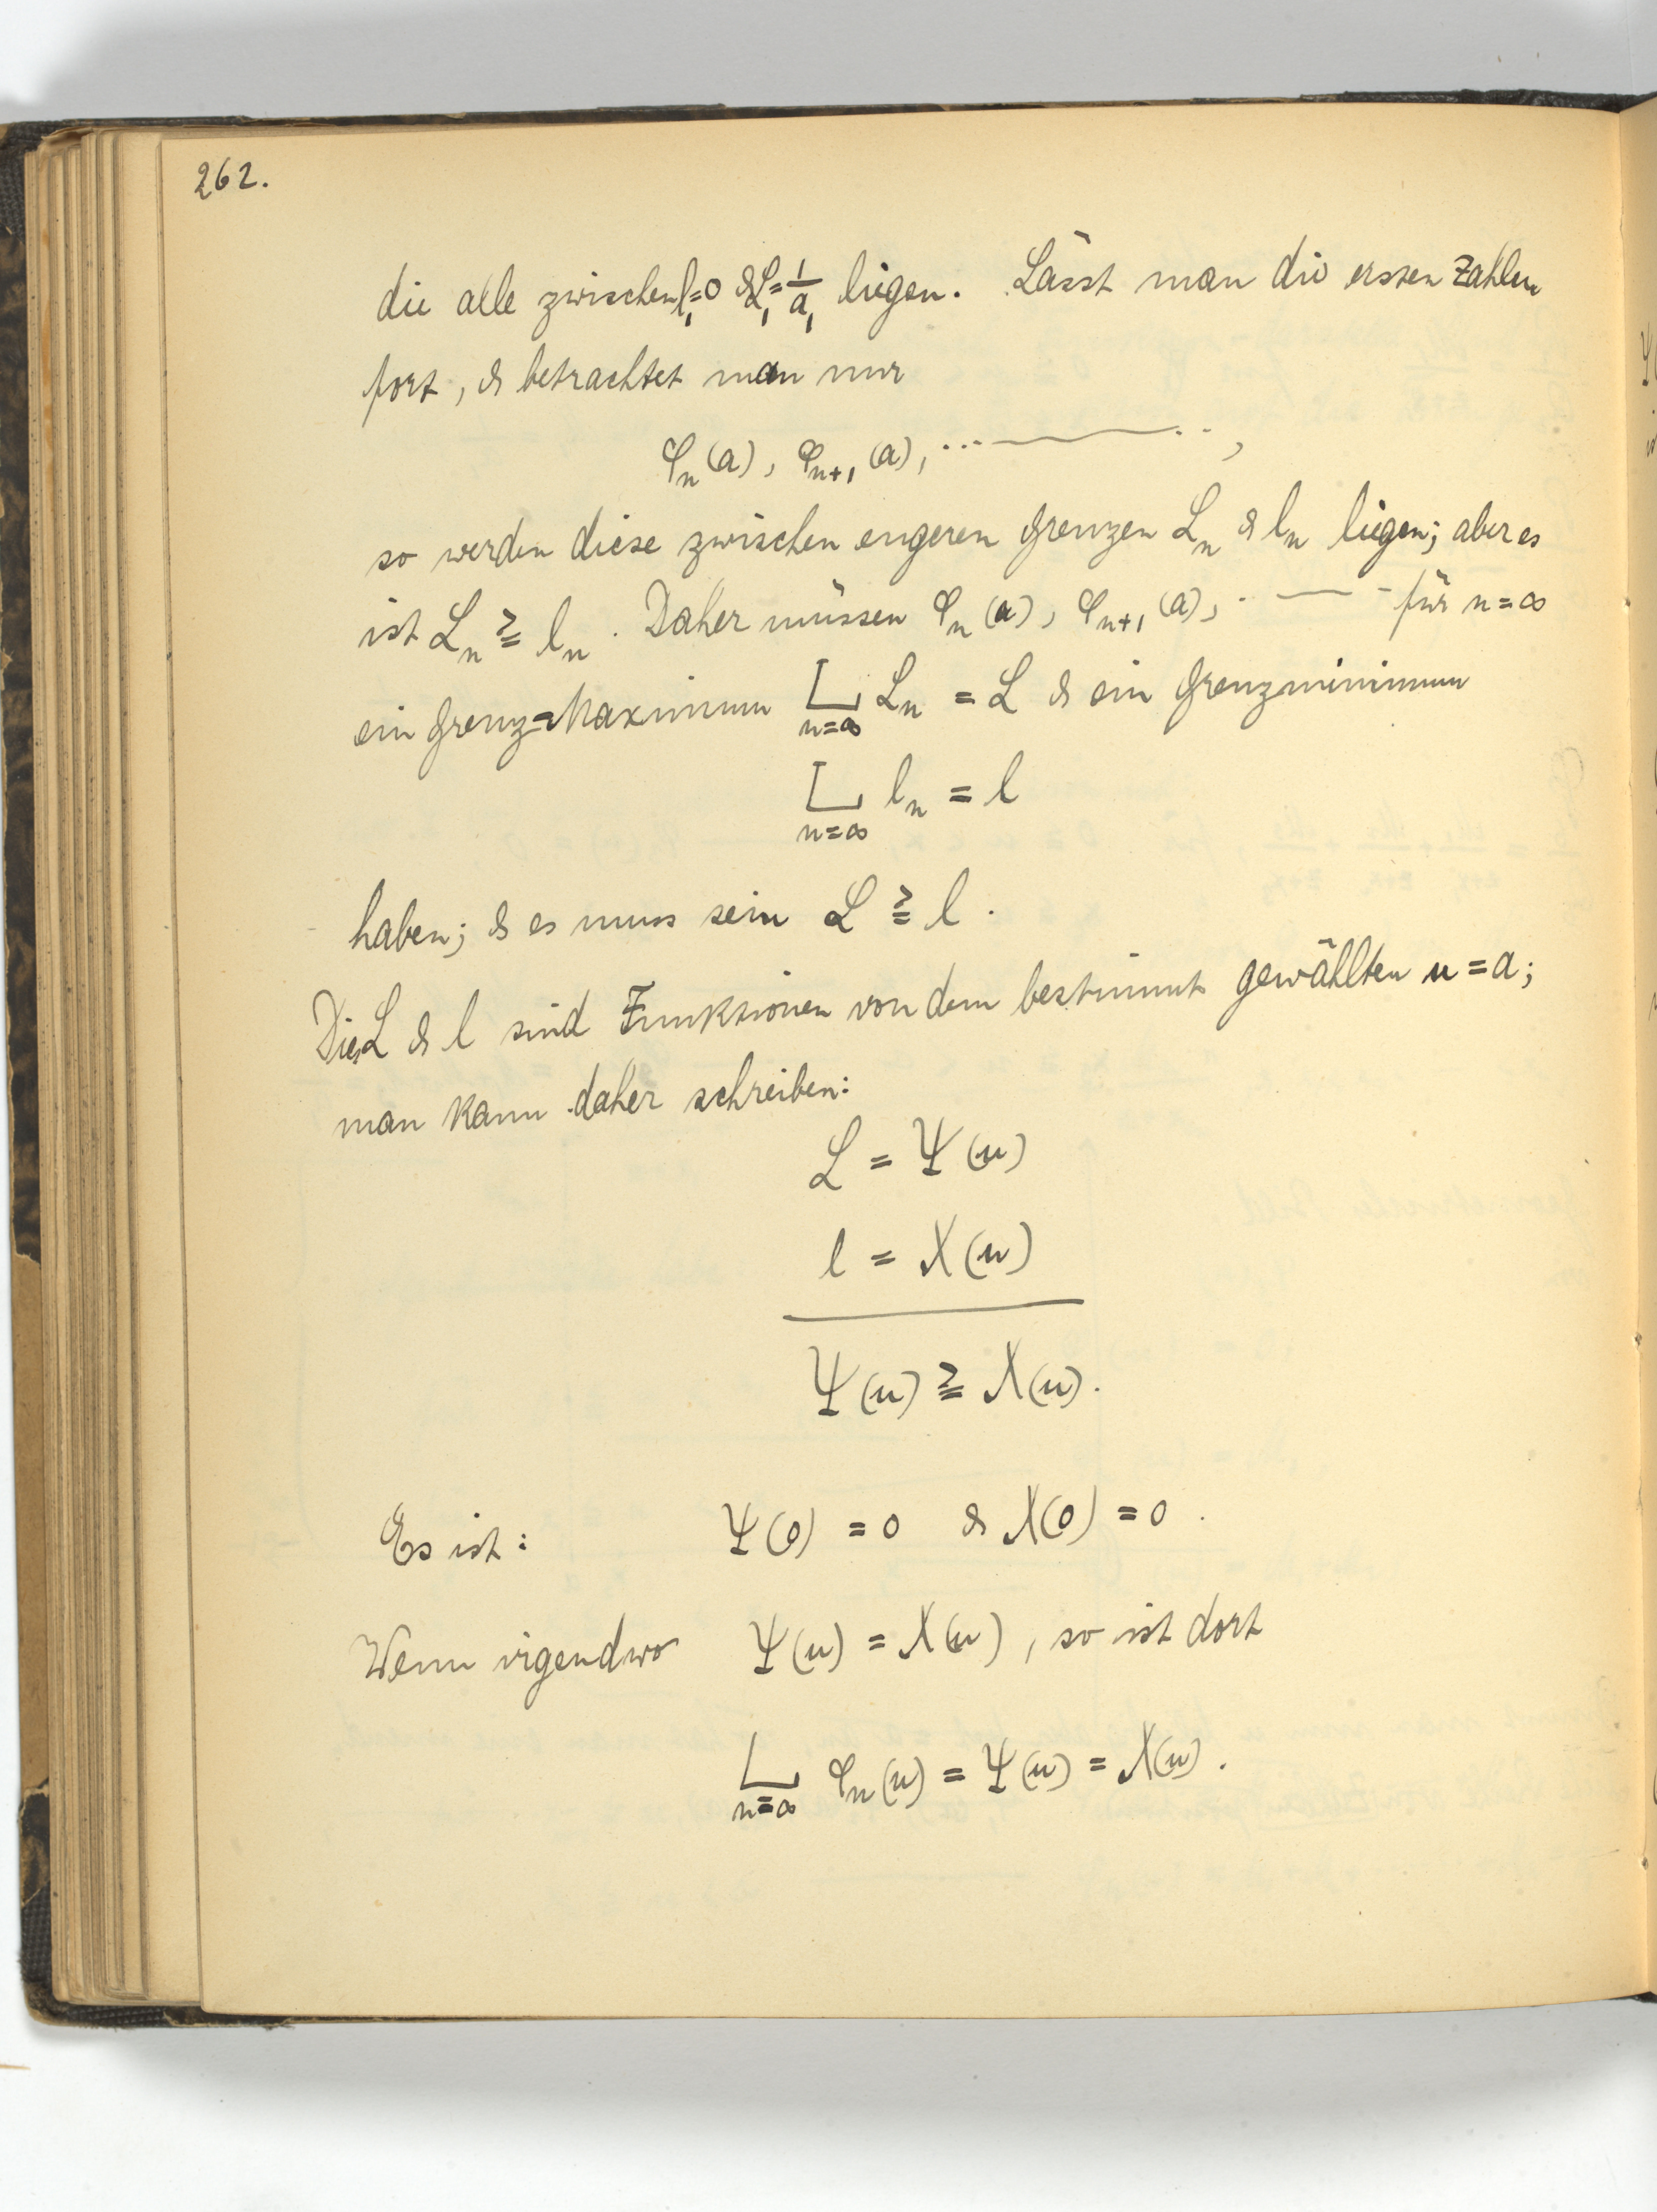 262.
die alle zwischen l₁=0 & L₁=1/a₁ liegen. Lässt man die ersten Zahlen
fort, & betrachtet man nur
φₙ(a), φₙ₊₁(a), ... — .. ,
so werden diese zwischen engeren Grenzen Lₙ & lₙ liegen; aber es
ist Lₙ ≧ lₙ. Daher müssen φₙ(a), φₙ₊₁(a), · — - für n=∞
ein Grenz=Maximum L n=∞ Lₙ = L & ein Grenzminimum
L n=∞ lₙ = l
haben; & es muss sein L ≧ l.
Die L & l sind Funktionen von dem bestimmt gewählten u=a;
man kann daher schreiben:
L = Ψ(u)
l = χ(u)
Ψ(u) ≧ χ(u).
Es ist: Ψ(0) = 0 & χ(0) = 0.
Wenn irgendwo Ψ(u) = χ(u), so ist dort
L n=∞ φₙ(u) = Ψ(u) = χ(u).